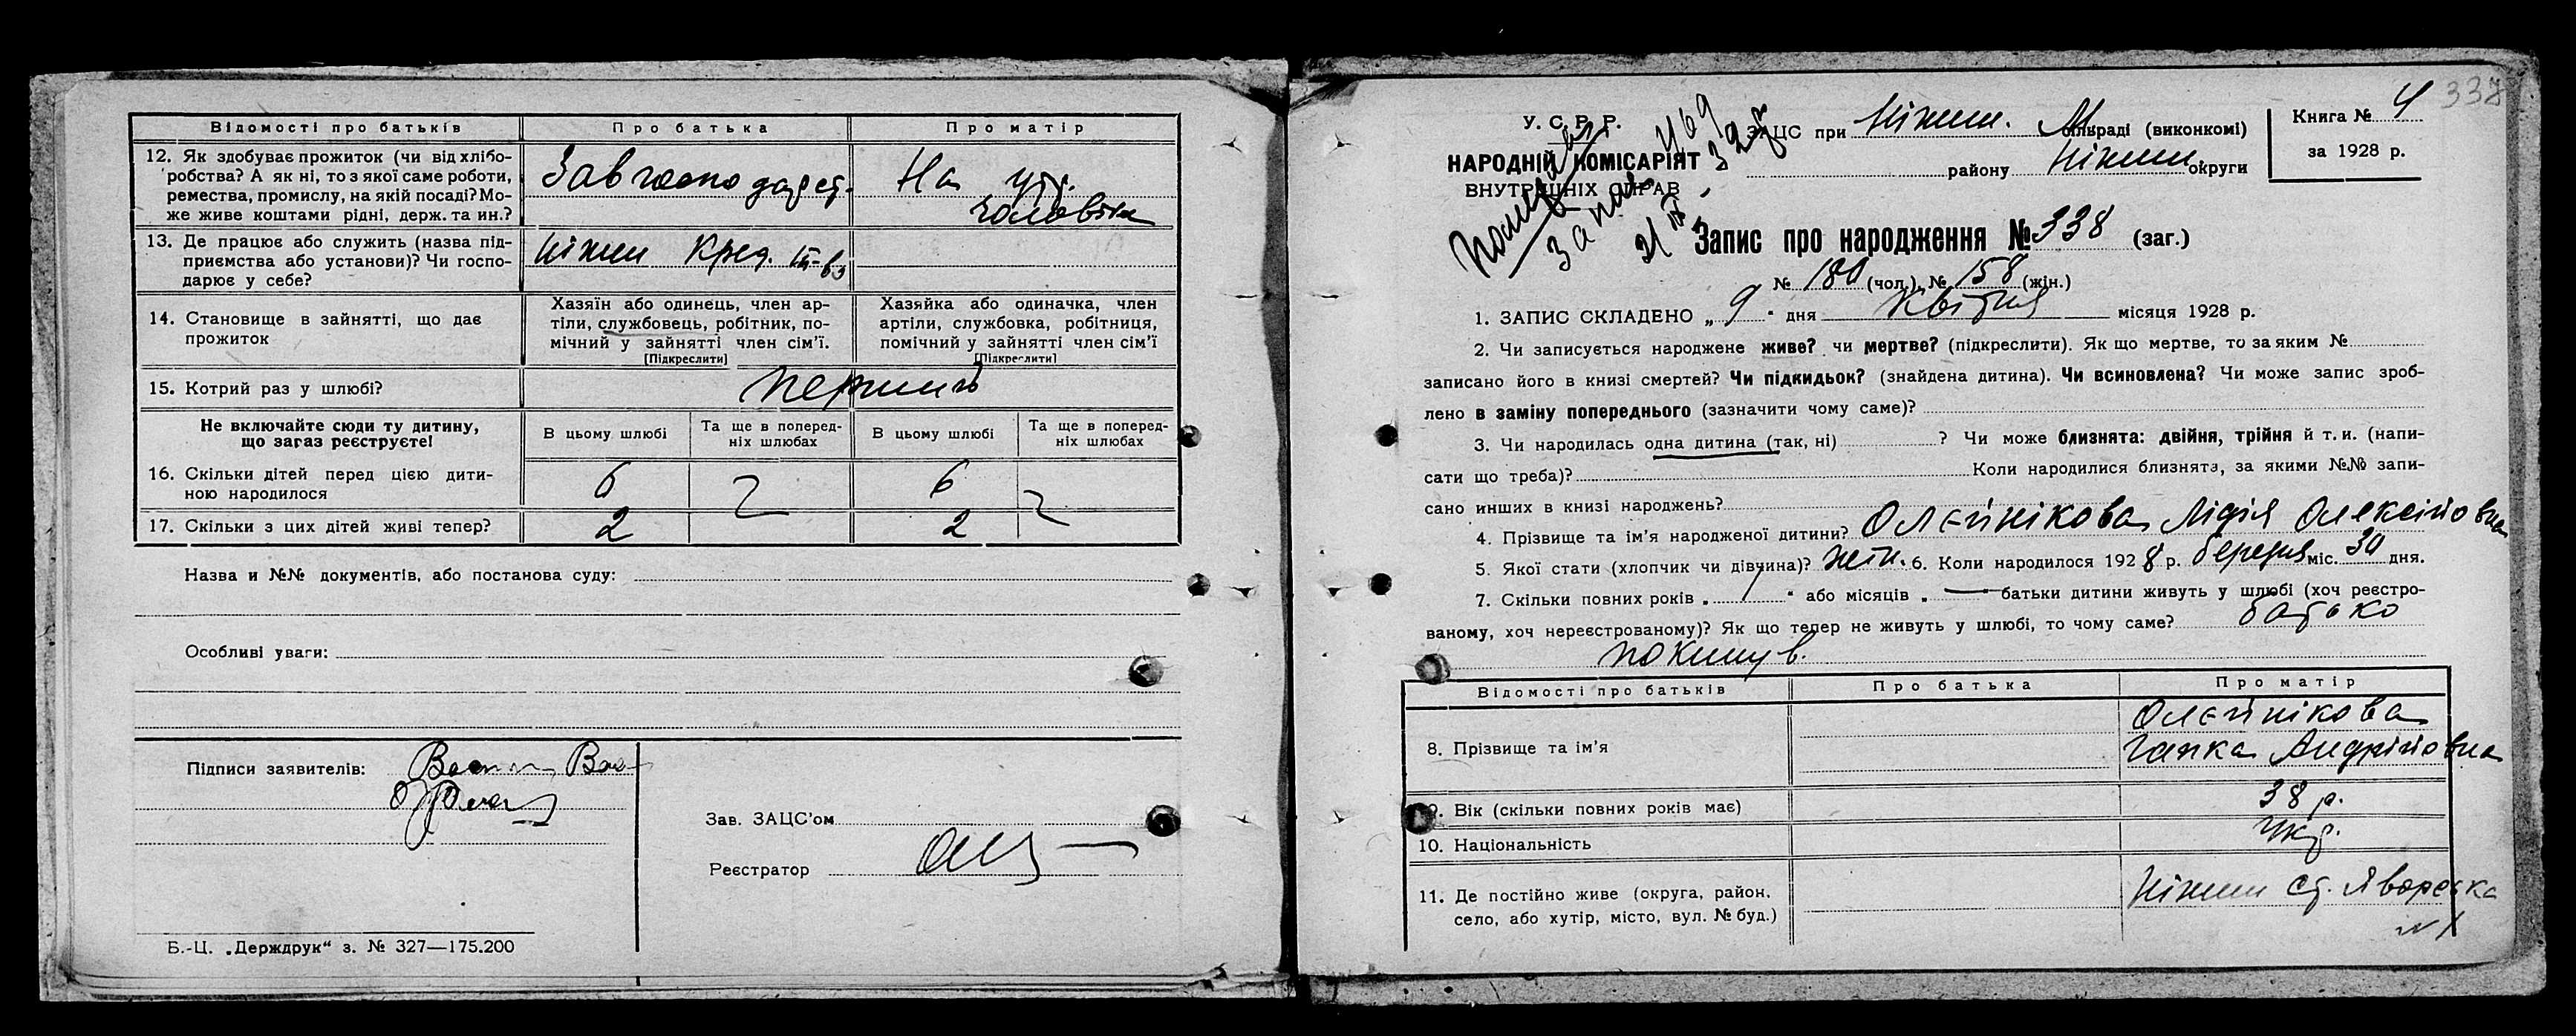 Відомості про батьків Про батька Про матір
12. Як здобуває прожиток (чи від хлібо-
робства? А як ні, то з якої саме роботи,
ремества, промислу, на якій посаді? Мо-
же живе коштами рідні, держ. та ин.?
На утр.
чоловіка
13. Де працює або служить (назва під-
приємства або установи)? Чи госпо-
дарює у себе?
Ніжин Кред. т-во
14. Становище в зайнятті, що дає
прожиток
Хазяїн або одинець, член ар-
тіли, службовець, робітник, по-
мічний у зайнятті член сім'ї.
[Підкреслити]
Хазяйка або одиначка, член
артіли, службовка, робітниця,
помічний у зайнятті член сім'ї
[Підкреслити]
15. Котрий раз у шлюбі? перший
Не включайте сюди ту дитину,
що загаз реєструєте!
В цьому шлюбі
Та ще в поперед-
ніх шлюбах
В цьому шлюбі
Та ще в поперед-
ніх шлюбах
16. Скільки дітей перед цією дити-
ною народилося
6 6
17. Скільки з цих дітей живі тепер? 2 2
Назва и №№ документів, або постанова суду:
Особливі уваги:
Підписи заявителів:
Зав. ЗАЦС'ом
Реєстратор
Б.-Ц. „Держдрук“ з. № 327—175.200
338
У. С. Р. Р.
НАРОДНІЙ КОМІСАРІЯТ
ВНУТРІШНІХ СПРАВ
ЗАЦС при Ніжин. М сільраді (виконкомі)
району Ніжин. округи
Книга № 4
за 1928 р.
Запис про народження № 338 (заг.)
№ 180 (чол.), № 158 (жін.)
1. ЗАПИС СКЛАДЕНО „ 9 “ дня Квітня місяця 1928 р.
2. Чи записується народжене живе? чи мертве? (підкреслити). Як що мертве, то за яким №
записано його в книзі смертей? Чи підкидьок? (знайдена дитина). Чи всиновлена? Чи може запис зроб-
лено в заміну попереднього (зазначити чому саме)?
3. Чи народилась одна дитина (так, ні) ? Чи може близнята: двійня, трійня й т. и. (напи-
сати що треба)? Коли народилися близнята, за якими №№ запи-
сано инших в книзі народжень?
4. Прізвище та ім'я народженої дитини? Олєйнікова Лідія Олексійовна
5. Якої стати (хлопчик чи дівчина)? жін. 6. Коли народилося 1928 р. березня міс. 30 дня.
7. Скільки повних років „ “ або місяців „ — “ батьки дитини живуть у шлюбі (хоч реєстро-
ваному, хоч нереєстрованому)? Як що тепер не живуть у шлюбі, то чому саме? батько
покинув.
Відомості про батьків Про батька Про матір
8. Прізвище та ім'я
Олєйнікова
Гапка Андрійовна
9. Вік (скільки повних років має) 38 р.
10. Національність Укр.
11. Де постійно живе (округа, район,
село, або хутір, місто, вул. № буд.)
Ніжин ст. Яворська
№ 1